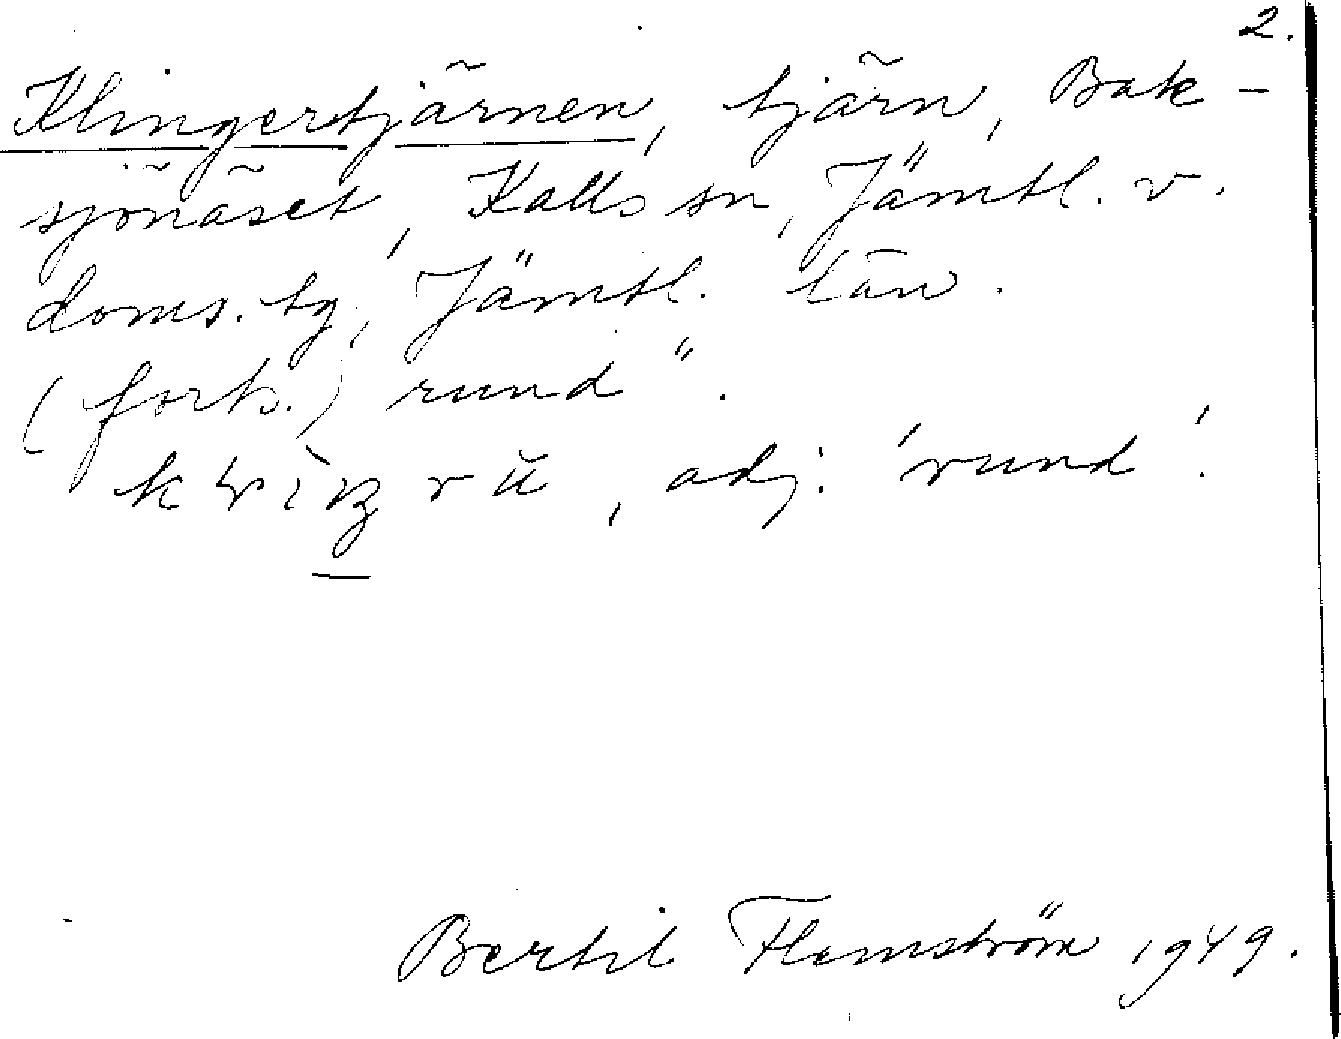 2.
Klingertjärnen, tjärn, Bak-
sjönäset, Kalls sn, Jämtl. v.
doms. tg, Jämtl. län.
(forts.) rund".
adj. 'rund'.
Bertil Flemström 1949.